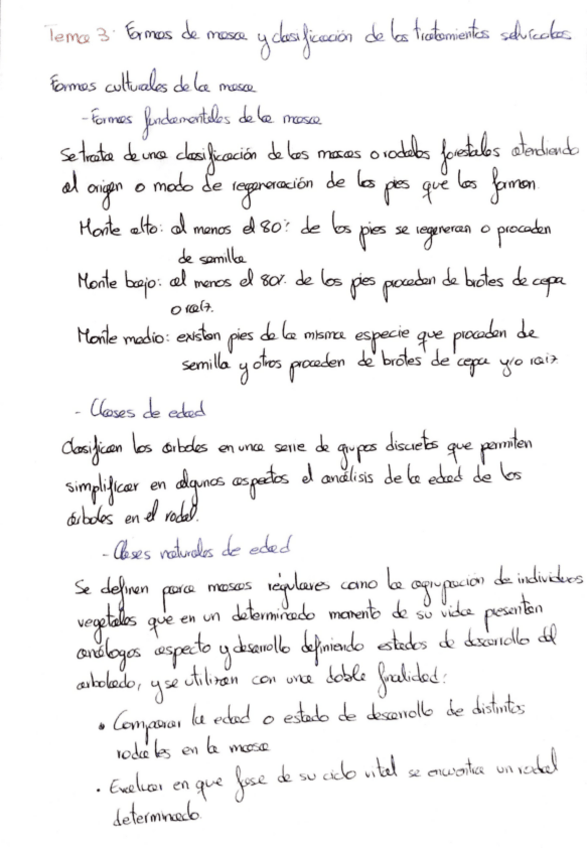 Tema 3: Formas de masa y clasificación de los tratamientos selvícolas
Formas culturales de la masa
- Formas fundamentales de la masa
Se trata de una clasificación de las masas o rodales forestales atendiendo
al origen o modo de regeneración de los pies que las forman.
Monte alto: al menos el 80% de los pies se regeneran o proceden
de semilla
Monte bajo: al menos el 80% de los pies proceden de brotes de cepa
o raíz.
Monte medio: existen pies de la misma especie que proceden de
semilla y otros proceden de brotes de cepa y/o raiz
- Clases de edad
Clasifican los árboles en una serie de grupos discretos que permiten
simplificar en algunos aspectos el análisis de la edad de los
árboles en el rodal.
- Clases naturales de edad
Se definen para masas régulares como la agrupación de individuos
vegetales que en un determinado momento de su vida presentan
análogos aspecto y desarrollo definiendo estados de desarrollo del
arbolado, y se utilizan con una doble finalidad:
• Comparar la edad o estado de desarrollo de distintos
rodales en la masa
• Evaluar en que fase de su ciclo vital se encuentra un rodal
determinado.